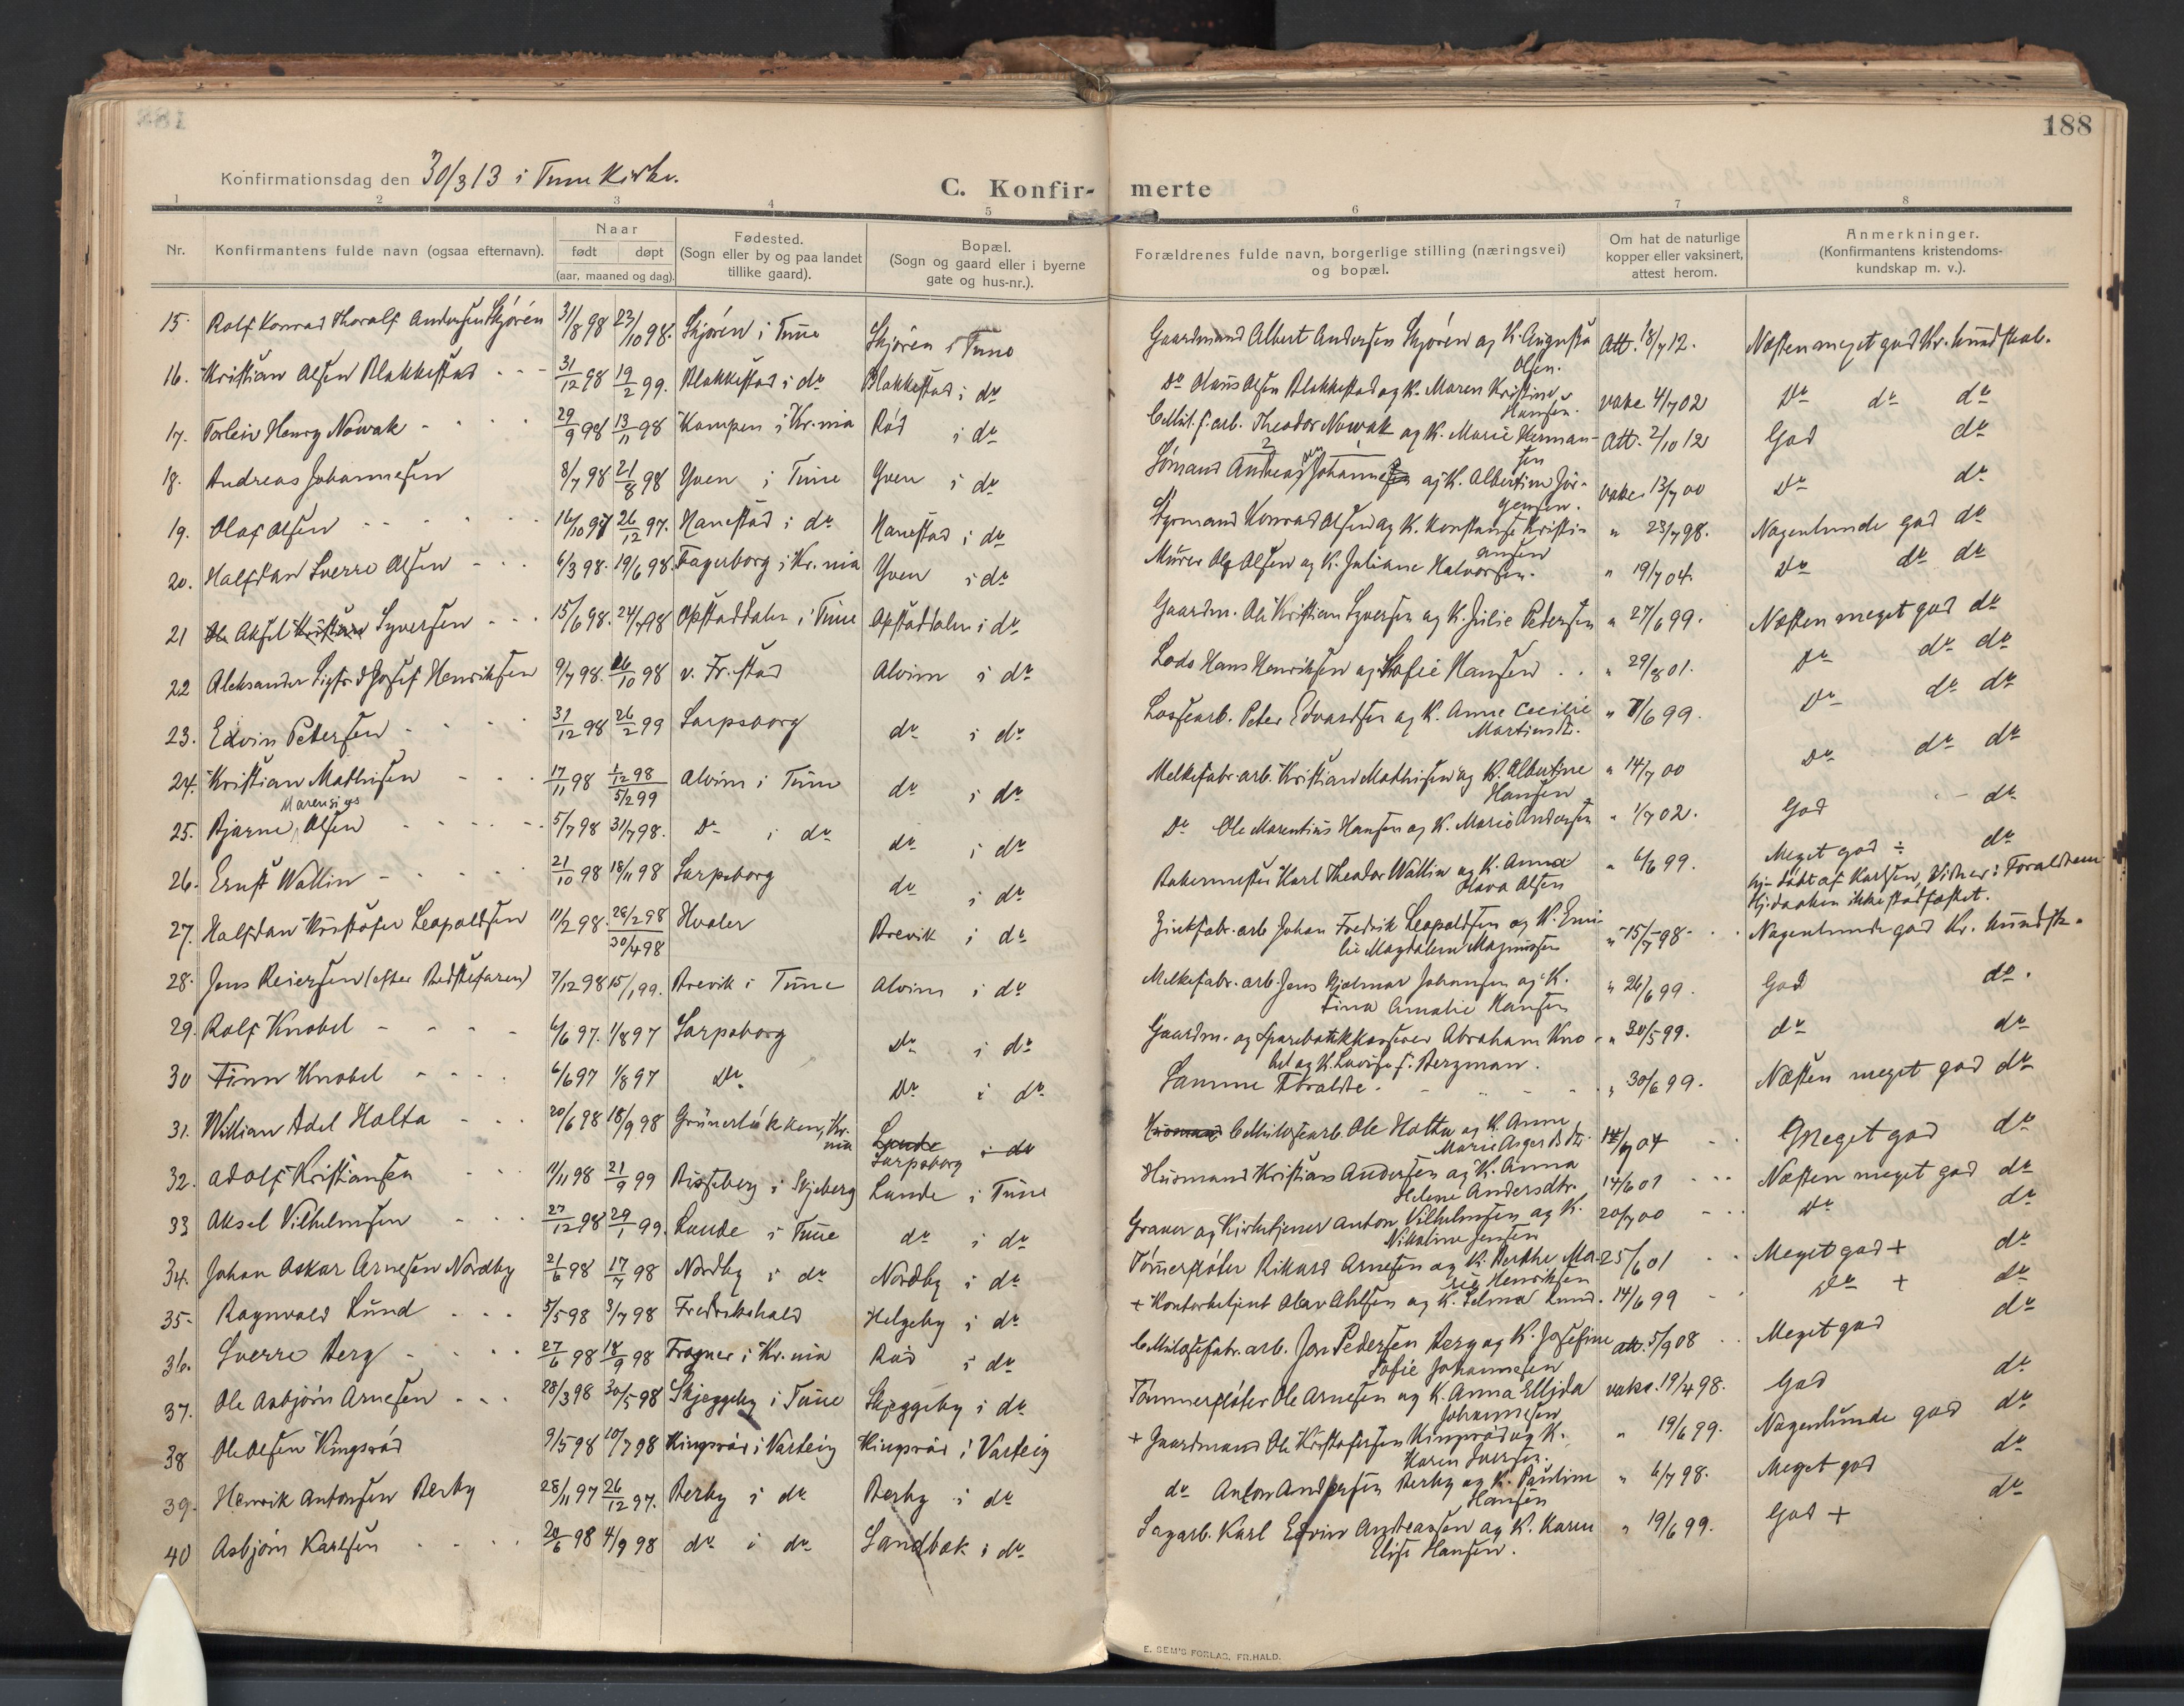 188
Konfirmationsdag den 30/3 13 i Tune Kirke.
C. Konfir- merte
1 2 3 4 5 6 7 8
Nr.
Konfirmantens fulde navn (ogsaa efternavn).
Naar
født døpt
(aar, maaned og dag).
Fødested.
(Sogn eller by og paa landet
tillike gaard).
Bopæl.
(Sogn og gaard eller i byerne
gate og hus-nr.).
Forældrenes fulde navn, borgerlige stilling (næringsvei)
og bopæl.
Om hat de naturlige
kopper eller vaksinert,
attest herom.
Anmerkninger.
(Konfirmantens kristendoms-
kundskap m. v.).
15. Rolf Konrad Thoralf Andersen Skjören 31/8 98 23/10 98. Skjören i Tune Skjören i Tune Gaardmand Albert Andersen Skjören og K. Augusta Att. 18/7 12. Næsten meget god Kr. kundskab.
Olsen.
16. Kristian Olsen Blakkestad 31/12 98 19/2 99. Blakkestad i do Blakkestad i do Do Olaus Olsen Blakkestad og K. Maren Kristine vakc 4/7 02 Do do do
Hansen.
17. Torleiv Henry Nowak 29/9 98 13/11 98 Kampen i Kr.nia Röd i do Cellul.f.arb. Theodor Nowak og K. Marie Herman- Att. 2/10 12 God do
sen
18. Andreas Johannesen 8/7 98 21/8 98 Yven i Tune Yven i do Sömand Andreas Johannesen og K. Albertine Jör- vakc. 13/7 00 Do do
gensen.
19. Olaf Olsen 16/10 97 26/12 97. Hanestad i do Hanestad i do Styrmand Konrad Olsen og K. Konstanse Kristi- " 23/7 98. Nogenlunde god do
ansen
20. Halfdan Sverre Olsen 6/3 98. 19/6 98. Fagerborg i Kr.nia Yven i do Murer Ole Olsen og K. Juliane Halvorsen. " 19/7 04. Do do do
21 Ole Aksel Kristian Syversen 15/6 98. 24/7 98 Opstaddalen i Tune Opstaddalen i do Gaardm. Ole Kristian Syversen og K. Julie Petersen " 27/6 99. Næsten meget god do
22 Aleksander Sigfrid Josef Henriksen 9/7 98. 16/10 98 v. Fr.stad Alvim i do Lods Hans Henriksen og Sofie Hansen " 29/8 01. Do do do
23. Edvin Petersen 31/12 98 26/2 99 Sarpsborg do i do Lossearb. Peter Edvardsen og K. Anne Cecilie " 7/6 99. Do do do
Martinsdtr.
24. Kristian Mathisen 17/11 98 1/12 98 Alvim i Tune do i do Melkefabr.arb. Kristian Mathisen og K. Albertine " 14/7 00 Do do do
5/2 99
Hansen
Marensius
25. Bjarne Olsen 5/7 98 31/7 98. Do i do do i do Do Ole Marentius Hansen og K. Marie Andersen " 1/7 02. God do
26. Ernst Wallin 21/10 98 18/11 98 Sarpsborg do i do Bakermester Karl Theodor Wallin og K. Anna " 6/6 99. Meget god ÷ do
Hava Olsen
Hj.döbt af Karlsen, Vidner: Forældrene
Hj.daaben ikke stadfæstet.
27. Halfdan Kristofer Leopoldsen 11/2 98. 28/2 98 Hvaler Brevik i do Zinkfabr.arb Johan Fredrik Leopoldsen og K. Emi- " 15/7 98 Nogenlunde god Kr. kundsk.
30/4 98
lie Magdalene Magnussen
28. Jens Reiersen (efter Bedstefaren) 7/12 98 15/1 99. Brevik i Tune Alvim i do Melkefabr.arb. Jens Hjalmar Johansen og K. " 26/6 99. God do.
Tina Amalie Hansen
29. Rolf Knobel 6/6 97. 1/8 97 Sarpsborg Do i do Gaardm. og Sparebankkasserer Abraham Kno- " 30/5 99. do do
bel og K. Lovise f. Bergman.
30 Finn Knobel 6/6 97 1/8 97 Do Do i do Samme Forældre. " 30/6 99. Næsten meget god do
31. William Adel Holta 20/6 98 18/9 98 Grünerlökken, Kr. Lunde i do Cellulosearb. Ole Holta og K. Anne 14/7 04 Meget god do
nia
Sarpsborg
Marie Asgersdtr.
32. Adolf Kristiansen 11/11 98 21/9 99 Bisseberg i Skjeberg Lunde i Tune Husmand Kristian Andersen og K. Anna 14/6 01 Næsten meget god do
Helene Andersdtr.
33 Aksel Vilhelmsen 27/12 98 29/1 99. Lunde i Tune do i do Graver og Kirketjener Anton Vilhelmsen og K. 20/7 00 Do do
Nikoline Jensen
34. Johan Oskar Arnesen Nordby 21/6 98 17/7 98 Nordby i do Nordby i do Tömmerflöter Rikard Arnesen og K. Berthe Ma- 25/6 01 Meget god + do
rie Henriksen
35. Ragnvald Lund 5/5 98 3/7 98 Fredrikshald Helgeby i do + Kontorbetjent Olav Ahlsen og K. Selma Lund. 14/6 99 Do + do
36. Sverre Berg 27/6 98 18/9 98 Frogner i Kr.nia Röd i do Cellulosefabr.arb. Jon Pedersen Berg og K. Josefine att. 5/9 08 Meget god do
Sofie Johannesen
37. Ole Asbjörn Arnesen 28/3 98 30/5 98 Skjeggeby i Tune Skjeggeby i do Tömmerflöter Ole Arnesen og K. Anna Ellida vakc. 19/4 98. God do
Johannesen
38 Ole Olsen Kingsröd 9/5 98 10/7 98 Kingsröd i Varteig Kingsröd i Varteig + Gaardmand Ole Kristofersen Kingsröd og K. " 19/6 99. Nogenlunde god do
Karen Iversen.
39. Henrik Antonsen Berby 28/11 97 26/12 97. Berby i do Berby i do do Anton Andersen Berby og K. Pauline " 6/7 98. Meget god do
Hansen
40 Asbjörn Karlsen 20/6 98 4/9 98 do i do Sandbak i do Sagarb. Karl Edvin Andreassen og K. Karen " 19/6 99. God + do
Elise Hansen.
E. SEM'S FORLAG. FR.HALD.